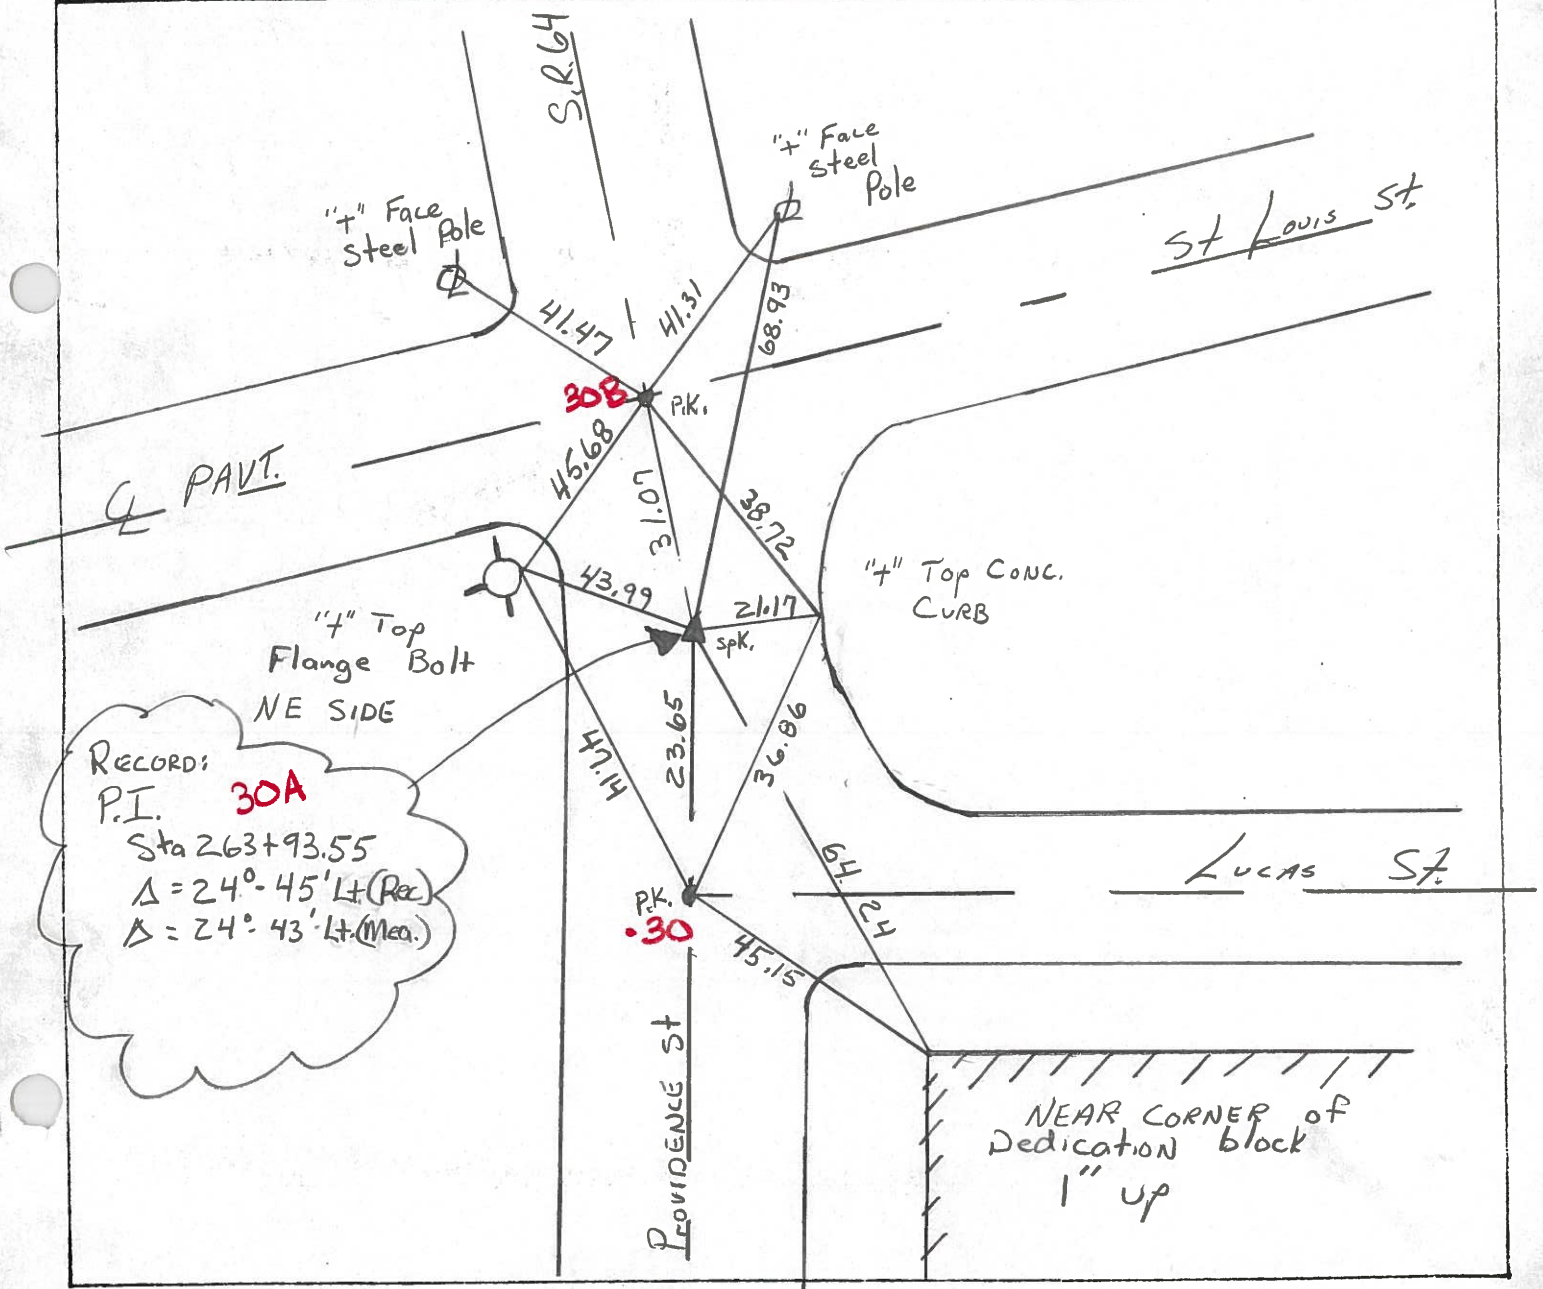 S.R. 64
"+" Face
Steel
Pole
"+" Face
Steel Pole
St Louis St.
41.47
41.31
68.93
30B
P.K.
45.68
31.07
38.72
℄ PAVT.
43.99
21.17
spk.
"+" Top Conc.
Curb
"+" Top
Flange Bolt
NE SIDE
23.65
36.86
47.14
RECORD:
P.I.
30A
Sta 263+93.55
Δ = 24°-45' Lt (Rec)
Δ = 24°-43' Lt. (Mea.)
64.24
Lucas St.
P.K.
.30
45.15
PROVIDENCE St
NEAR CORNER of
Dedication block
1" up